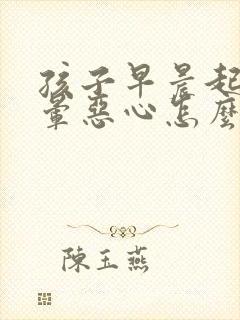 孩子早晨起
暈惡心怎麼
陳玉燕